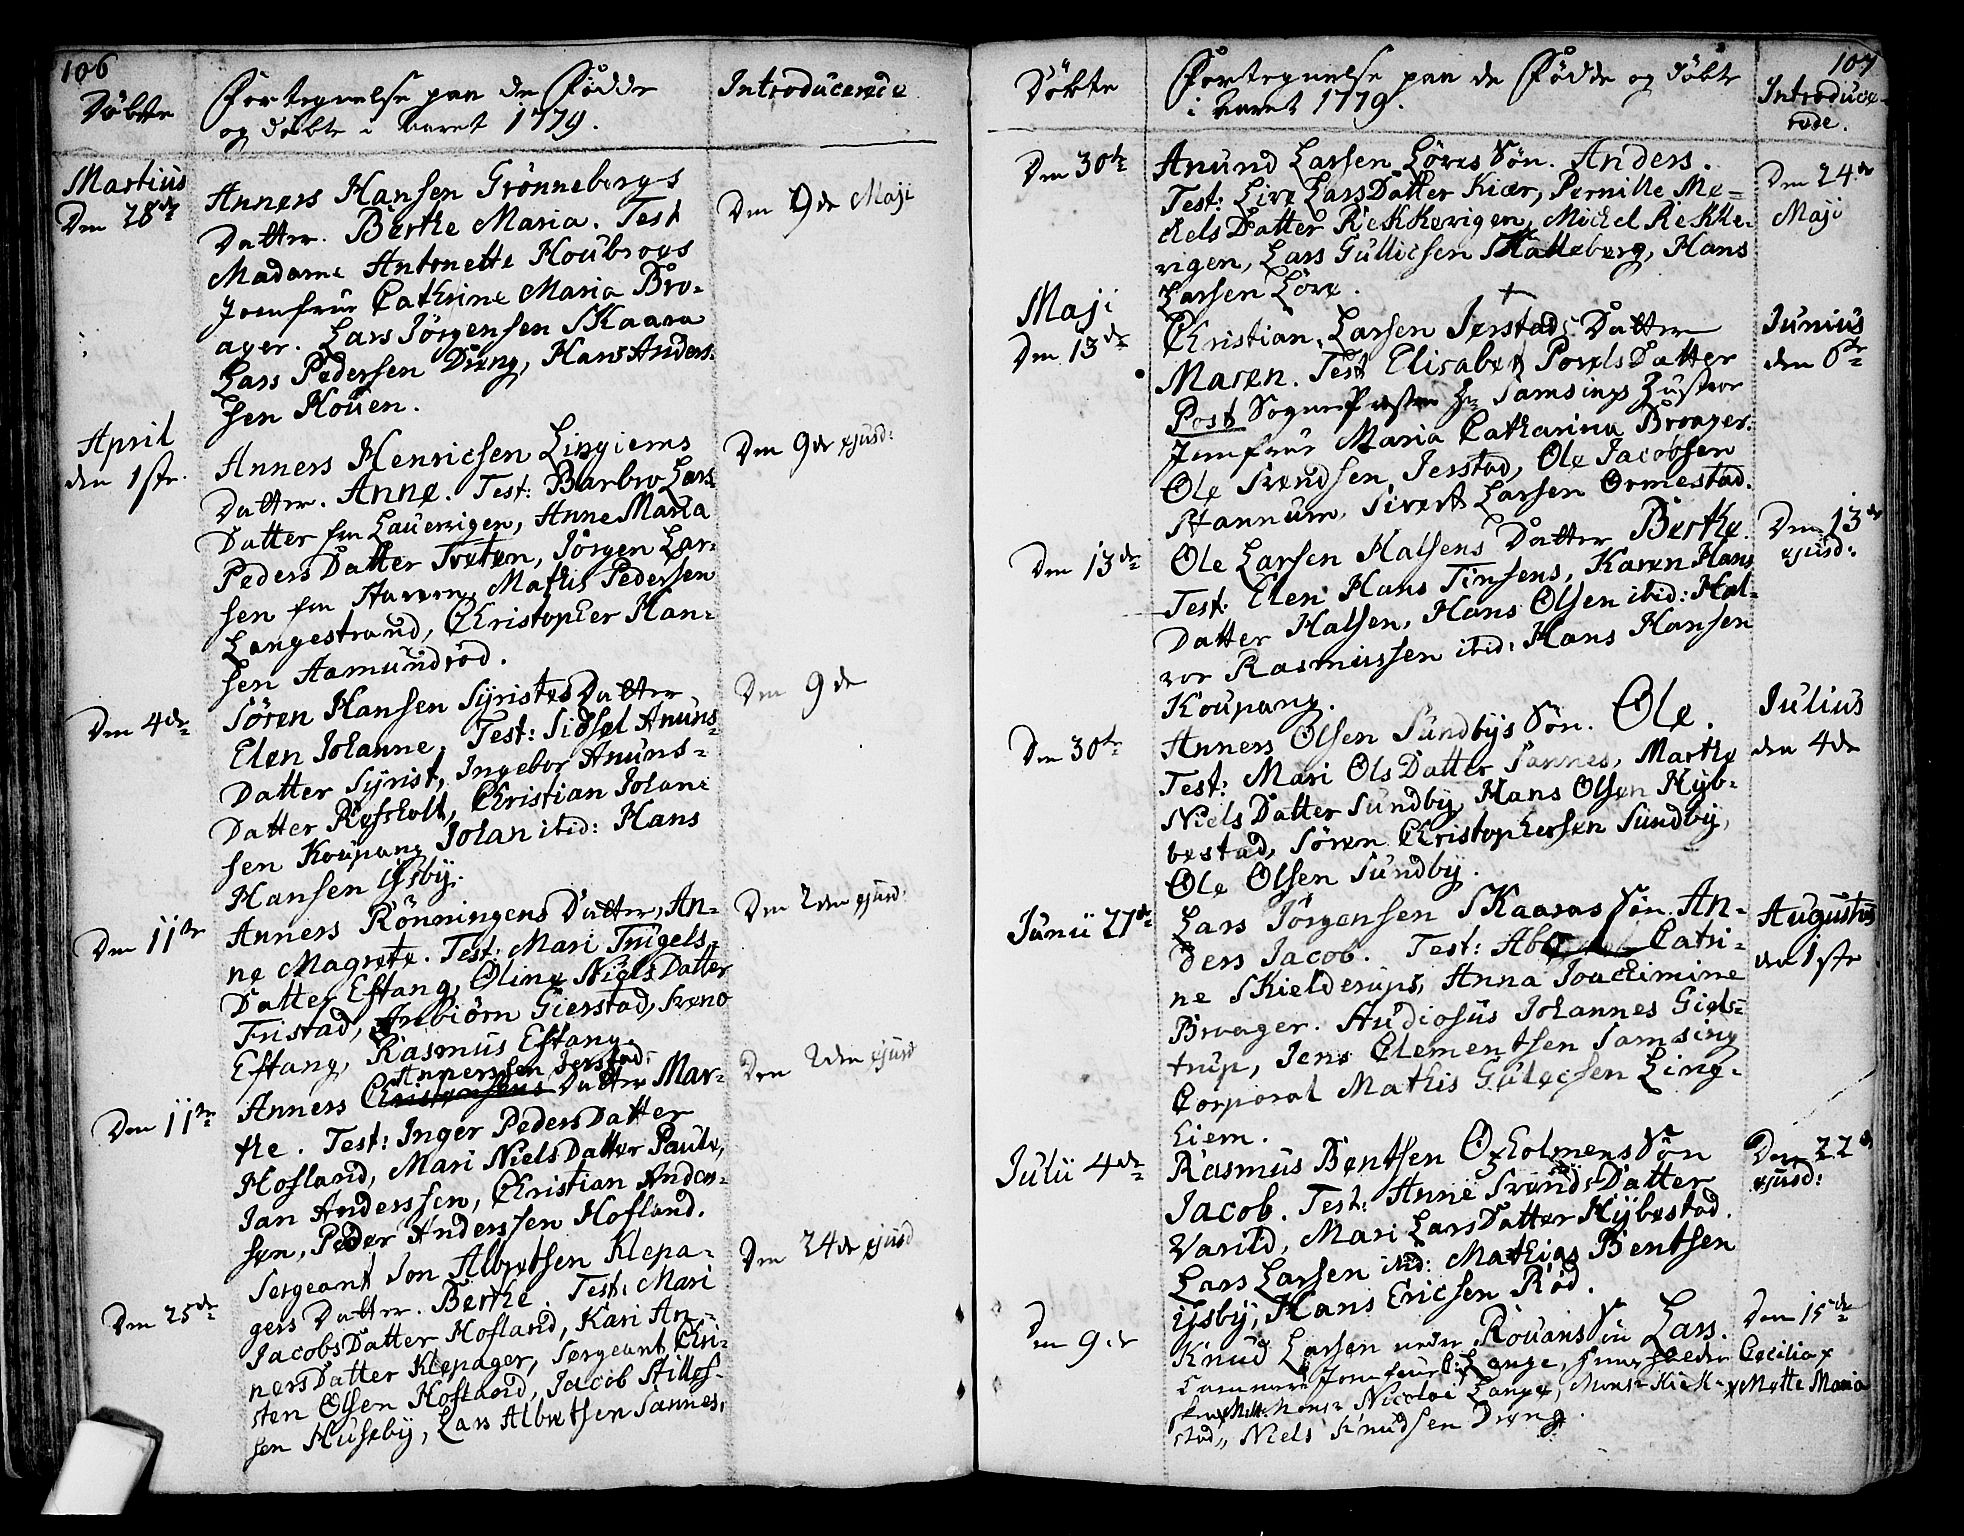 106
Döbte
Fortegnelse paa de Födde
og döbte i Aaret 1779.
Introducerede
Martius
Den 28de
Anners Hansen Grönnebergs
Datter. Berthe Maria. Test
Madame Antonette Houbroes
Jomfrue Cathrine Maria Bro-
ager. Lars Jörgensen SKaara
Lars Pedersen Dreng, Hans Anders-
sen Houen.
Den 9de Maji
April
den 1ste
Anners Henricsen Lingiems
Datter. Anne. Test: Barbro Lars
Datter fra Lauervigen, Anne Maria
Peders Datter Treten, Jörgen Lar-
sen fra Haven, Mathis Pedersen
Langestrand, Christopher Han-
sen Aamundröd.
Den 9de ejusd:
Den 4de
Sören Hansen Syristes Datter
Elen Johanne. Test: Sidsel Anuns
Datter Syrist, Ingebor Anuns-
Datter Refsholt, Christian Johan
sen Koupang Johan ibid: Hans
Hansen Ijsby.
Den 9de
Den 11te
Anners Rönningens Datter, An-
ne Magrete. Test: Mari Trugels
Datter Eftang, Oline Niels Datter
Tristad, Anbiörn Gierstad, Svend
Eftang, Rasmus Eftang.
Den 2den ejusd
Den 11te
Anderssen Jerstad:
Anners Christensens Datter Mar-
the. Test: Inger Peders Datter
Hofland, Mari Niels Datter Paule,
Jan Anderssen, Christian Anders-
sen, Peder Anderssen Hofland.
Den 2den ejusd
Den 25de
Sergeant Jon Albretsen Klepa-
gers Datter. Berthe. Test: Mari
Jacobs Datter Hofland, Kari An-
ners Datter Klepager, Sergeant Chri-
sten Olsen Hofland, Jacob Stillef-
sen Huseby, Lars Albretsen Sannes.
Den 24de ejusd
107
Döbte
Fortegnelse paa de Födde og döbte
i Aaret 1779.
Introduce-
rede.
Den 30te
Anund Larsen Löves Sön. Anders.
Test: Live Lars Datter Kiær, Pernille Me-
chels Datter Rekkevigen, Michel Rekke-
vigen, Lars Gullicsen SKalleberg, Hans
Larsen Löve.
Den 24de
Maji
Maji
Den 13de
Christian Larsen Jerstads Datter
Maren. Test Elisabet Povels Datter
Post Sogne Præsten Hr Samsings Hustroe
Jomfrue Maria Catharina Broager.
Ole Svendsen Jerstad, Ole Jacobsen
Hannum, Sivert Larsen Ormestad.
Junius
den 6te
Den 13de
Ole Larsen Halsens Datter Berthe.
Test: Eleni Hans Tinsens, Karen Hans
Datter Halsen, Hans Olsen ibid: Hal-
vor Rasmussen ibid: Hans Hansen
Koupang.
Den 13de
ejusd:
Den 30te
Anners Olsen Sundbys Sön. Ole.
Test: Mari Ols Datter Sannes, Marthe
Niels Datter Sundby, Hans Olsen Hyb-
bestad, Sören Christophersen Sundby,
Ole Olsen Sundby.
Julius
den 4de
Junii 27de
Lars Jörgensen SKaaras Sön. An-
ders Jacob. Test: Catri-
ne SKielderups, Anna Joachimine
Broager. Studiosus Johannes Giels-
trup, Jens Clementsen Samsing
Corporal Mathis Gulecsen Ling-
hiem.
Augustus
den 1ste
Julii 4de
Rasmus Bentsen Oxholmens Sön
Jacob. Test: Anne Svends Datter
Varild, Mari Lars Datter Hybestad.
Lars Larsen ibid: Mathias Bentsen
Ijsby, Hans Ericsen Röd.
Den 22de
ejusd:
Den 9de
Knud Larsen under Rouans Sön Lars.
Jomfrue Lange,
Nicolai Lange,
stad, Niels Knudsen Dreng.
Den 15de
Cecilia x
x Mette Maria